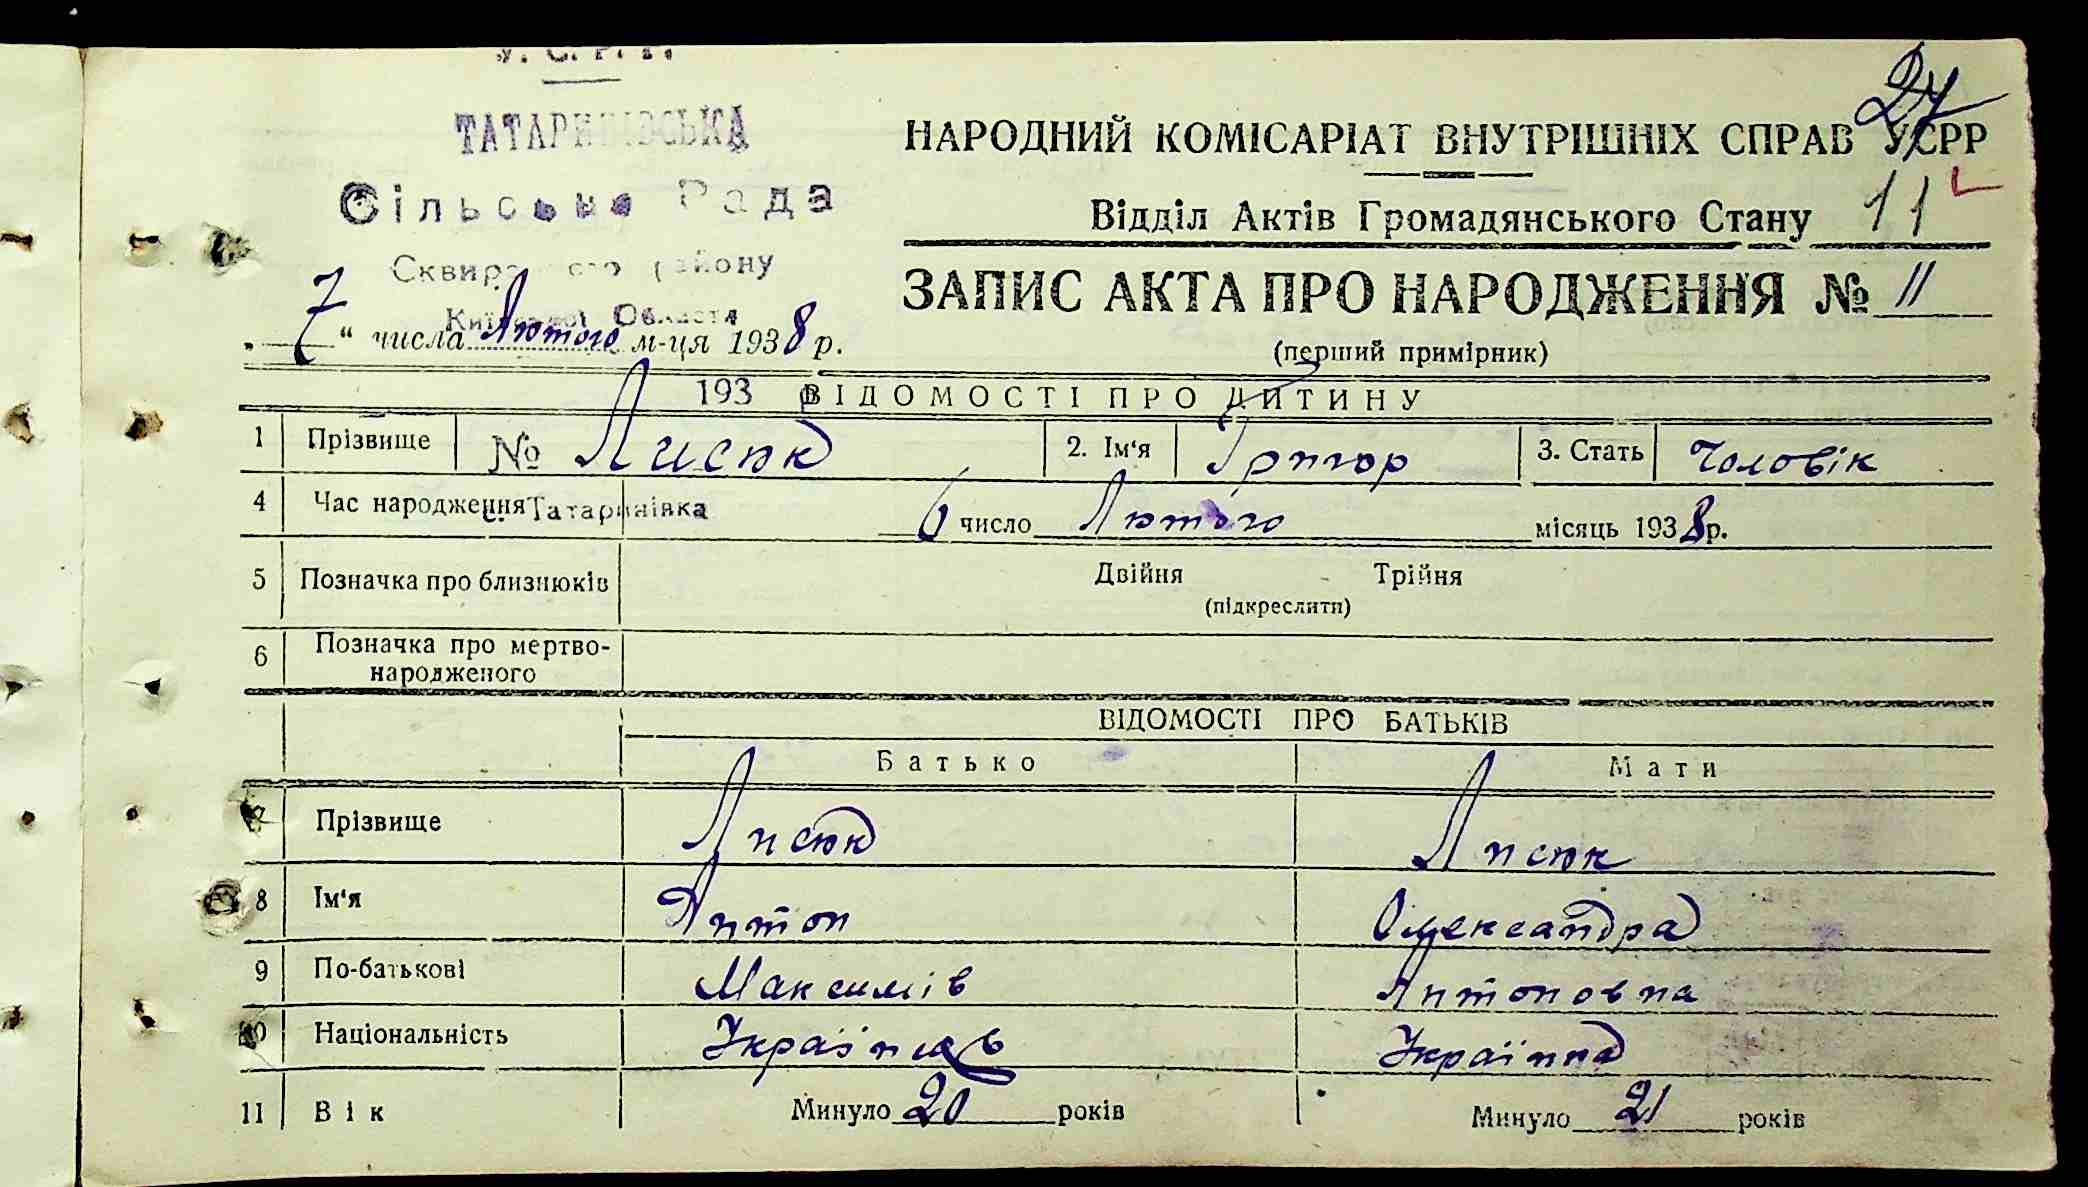 У. С. Р. Р.
ТАТАРИНІВСЬКА
Сільська Рада
Сквирського району
Київської Області
НАРОДНИЙ КОМІСАРІАТ ВНУТРІШНІХ СПРАВ УСРР
27
Відділ Актів Громадянського Стану 11
ЗАПИС АКТА ПРО НАРОДЖЕННЯ № 11
„ 7 “ числа Лютого м-ця 1938 р.
(перший примірник)
193 ВІДОМОСТІ ПРО ДИТИНУ
1 Прізвище № Лисюк 2. Ім'я Григор 3. Стать Чоловік
4 Час народження с. Татаринівка 6 число Лютого місяць 1938 р.
5 Позначка про близнюків Двійня Трійня
(підкреслити)
6 Позначка про мертво-
народженого
ВІДОМОСТІ ПРО БАТЬКІВ
Батько Мати
7 Прізвище Лисюк Лисюк
8 Ім'я Антон Олександра
9 По-батькові Максимів Антоновна
10 Національність Українець Українка
11 Вік Минуло 20 років Минуло 21 років